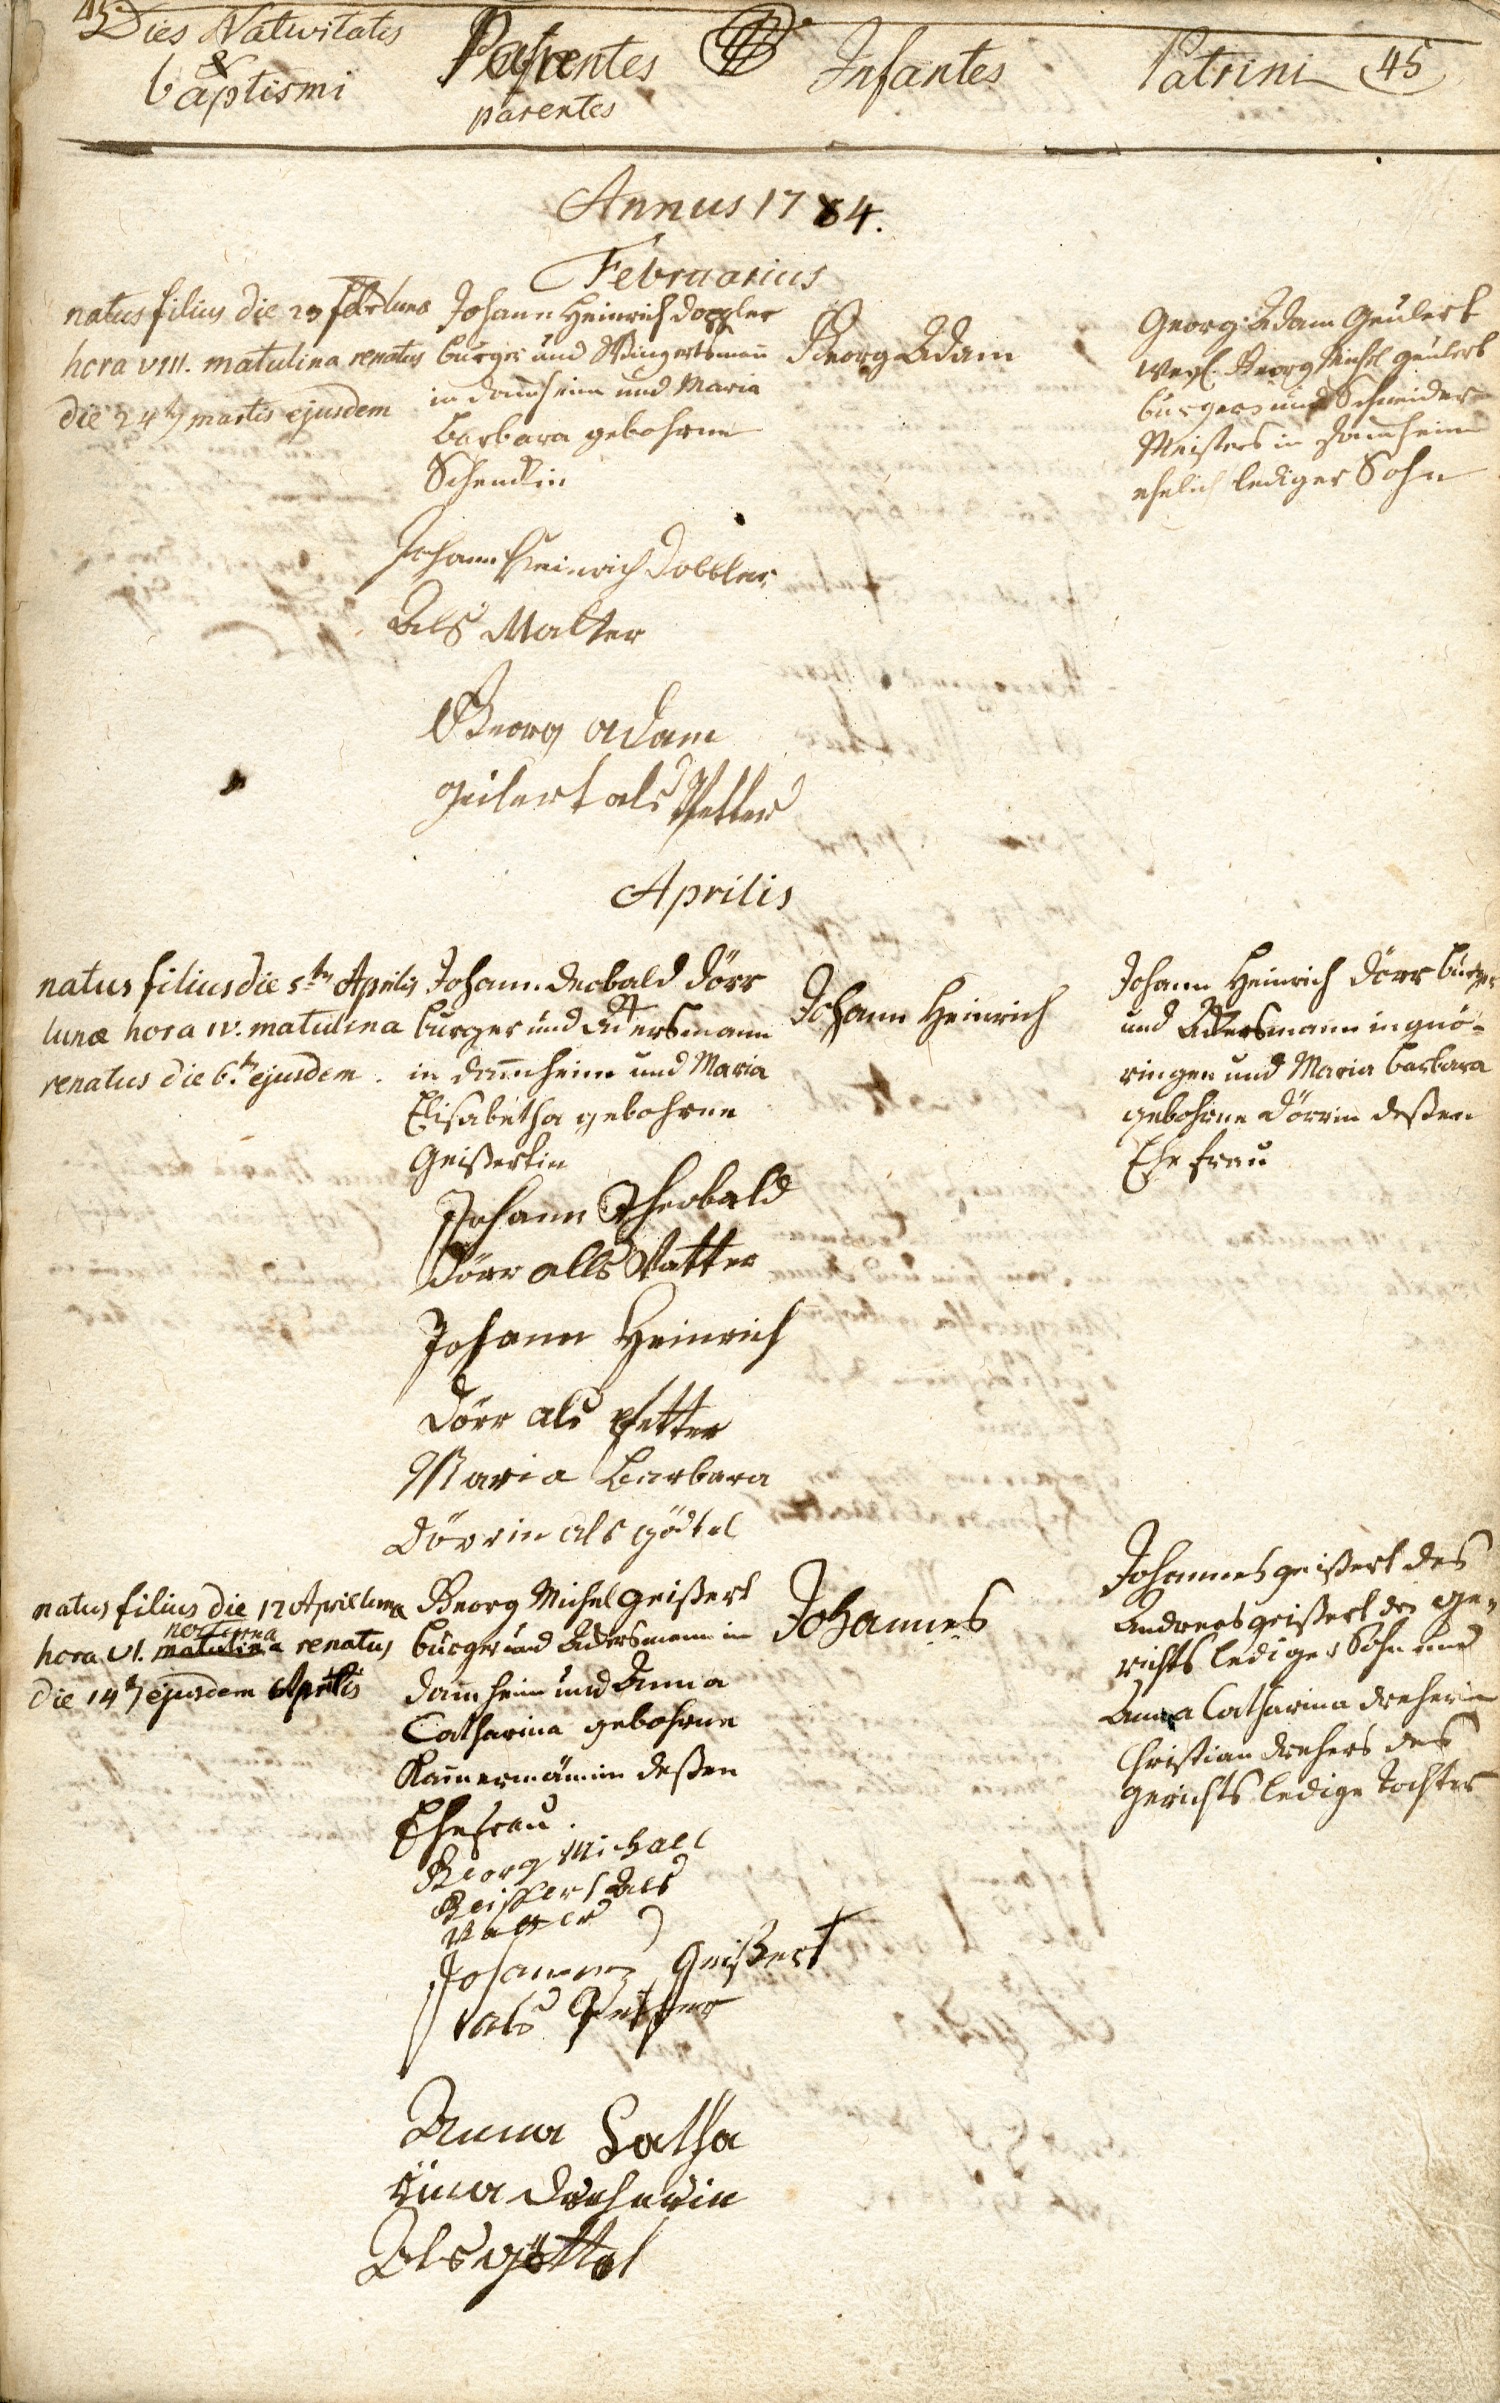 45
Dies Nativitatis
&
baptismi
Parentes
parentes
Infantes
Patrini
45
Annus 1784.
Februarius
natus filius die 23 febr lunæ
hora VIII. matutina renatus
die 24t martis ejusdem
Johann Heinrich Doppler
burger und Wingertsmann
in Damheim und Maria
Barbara gebohrne
Georg Adam
Georg Adam Geulert
weyl. Georg Michel Geulerts
burgers und Schneider
Meisters in Damheim
ehelich lediger Sohn
Johann Heinrich Dobbler
Als Vatter
Georg Adam
Geilert als Pfetter
Aprilis
natus filius die 5tn Aprilis
lunæ hora IV. matutina
renatus die 6tn ejusdem.
Johann Deobald Dörr
burger und Ackersmann
in Damheim und Maria
Elisabetha gebohrne
Geißertin
Johann Heinrich
Johann Heinrich Dörr burger
und Ackersmann in Knö-
ringen und Maria Barbara
gebohrne Dörrin deßen
Ehe frau
Johann Theobald
Dörr alls Vatter
Johann Heinrich
Dörr als pfetter
Maria Barbara
Dörrin als gödtel
natus filius die 12 April luna
hora VI. matutina nocturna renatus
die 14t ejusdem Aprilis
Georg Michel Geißert
burger und Ackersmann in
Damheim und Anna
Catharina gebohrne
Kammermännin deßen
Ehefrau.
Johannes
Johannes Geißert des
Andreas Geißert des ge-
richts lediger Sohn und
Anna Catharina Dreherin
Christian Drehers des
Gerichts ledige Tochter
Georg Michael
Geissert Als
Vatter
Johannes Geißert
als Petter
Anna Catha
rina Dreherin
Als göttel